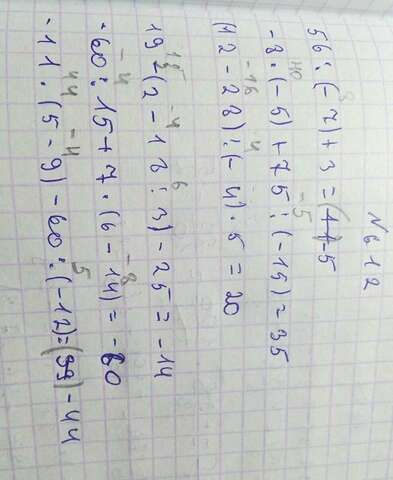 N612
8
56 : (-7) + 3 = -5
40 -5
-8 · (-5) + 75 : (-15) = 35
-16 4
(12 - 28) : (-4) · 5 = 20
-4 6
19 - (2 - 18 : 3) - 25 = -14
-4 -8
-60 : 15 + 7 · (6 - 14) = -60
44 -4 5
-11 · (5 - 9) - 60 : (-12) = (39) - 44